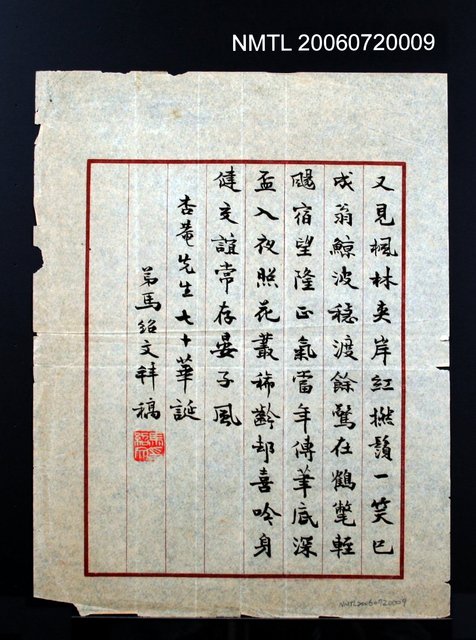 NMTL 20060720009
又見楓林夾岸紅撚鬚一笑已
成翁鯨波穩渡餘驚在鶴氅輕
颺宿望隆正氣當年傳筆底深
盃入夜照花叢稀齡却喜吟身
健交誼常存晏子風
杏菴先生七十華誕
弟馬紹文拜稿
NMTL20060720009